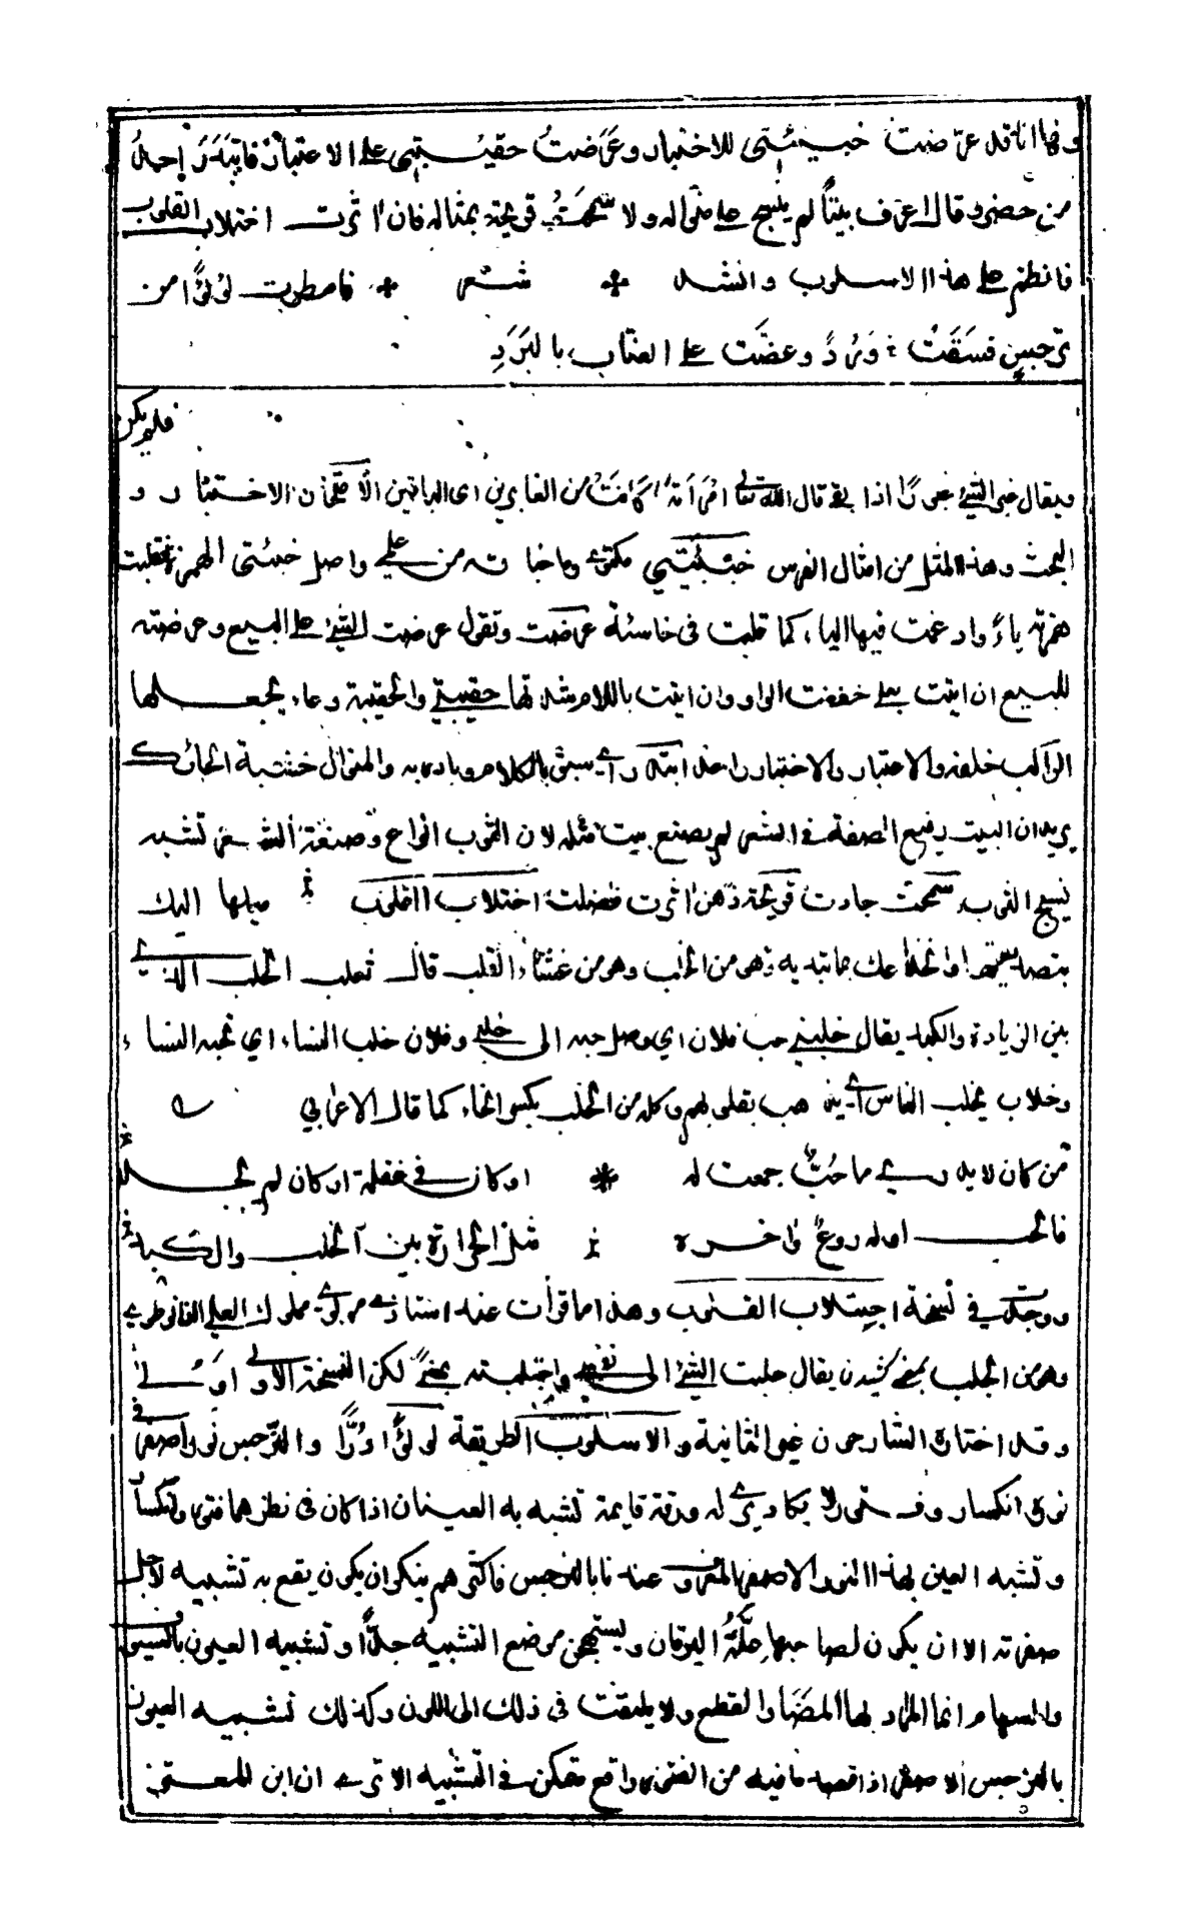 وها انا قد عرّضت خبيئتي للاختبار وعَرَضتُ حقيبتي على الاعتبار فابتَدَرَ احدُ
من حضر وقال اعرف بيتًا لم ينسج على منواله ولا سَمَحَتْ قريحةٌ بمثاله فان اثرت اختلاب القلوب
فانظم على هذا الاسلوب وانشد شعر فامطرت لؤلؤًا من
نرجسٍ فسَقَتْ وَرْدًا وعضَّت على العناب بالبَرَدِ
فلم يكن
ويقال غبر الشيء غبورًا اذا بقي قال الله تعالى امرأته كانت من الغابرين اى الباقين الامتحان الاختبار و
البحث وهذا المثل من امثال الفرس خبيئتي مكتومي وما خبأته من علمي واصل خبيئتى الهمزة فقلبت
همزته ياءً وادغمت فيها الياء كما قلبت فى خاسئة عرضت وتقول عرضت الشيء على البيع وعرضته
للبيع ان اتيت بعلى خففت الواو وان اتيت باللام شددتها حقيبتي والحقيبة وعاء يجعلها
الراكب خلفه والاعتبار والاختبار واحد ابتدر اي سبق بالكلام وبادر به والمنوال خشبة الحائك
يريد ان البيت رفيع الصفة في الشعر لم يصنع بيت مثله لان الثوب انواع وصنعة الشعر تشبه
نسج الثوب سمحت جادت قريحة ذهن اثرت فضلت اختلاب القلوب ميلها اليك
وهو من الخلب وهو من غشاء القلب قال ثعلب الخلب الذي
بين الزيادة والكبد يقال خلبني حب فلان اي وصل حبه الى خلبي وفلان خلب النساء اي تحبه النساء
وخلاب يخلب الناس اي يذهب بقلوبهم وكله من الخلب بكسر الخاء كما قال الاعرابي
من كان لا يدري ما حُبٌّ جمعت له اوكان في غفلة او كان لم يجد
فالحب اوله روعٌ واخره مثل الحرارة بين الخلب والكبد
ووجدت في نسخة اجتلاب القلوب وهذا ما قرأت عند استاذي مملوك العلي النانوتوي
وهو من الجلب بمعنى كشيدن يقال جلبت الشيء الى نفسي واجتلبته بمعنىً لكن النسخة الاولى اولى
وقد اختار الشارحون غير الثانية والاسلوب الطريقة لؤلؤًا دُرًّا والنرجس نور اصفر في
نوره انكسار وفتور لا يكاد يرى له ورقة قايمة تشبه به العينان اذا كان فى نظرهما فتور وانكسار
وتشبه العين بهذا النور الاصفر المعروف عندنا بالنرجس فاكثرهم ينكر ان يكون يقع به تشبيه لاجل
صفرته الا ان يكون لصاحبها علّة اليرقان ويستهجن موضع التشبيه جدًّا وتشبيه العيون بالسيوف
والسهام انما المراد بها المضاء والقطع ولا يلتفت فى ذلك الى اللون وكذلك تشبيه العيون
بالنرجس الاصفر اذا قصد ما فيه من الفتور واقع متمكن في التشبيه الا ترى ان ابن المعتز